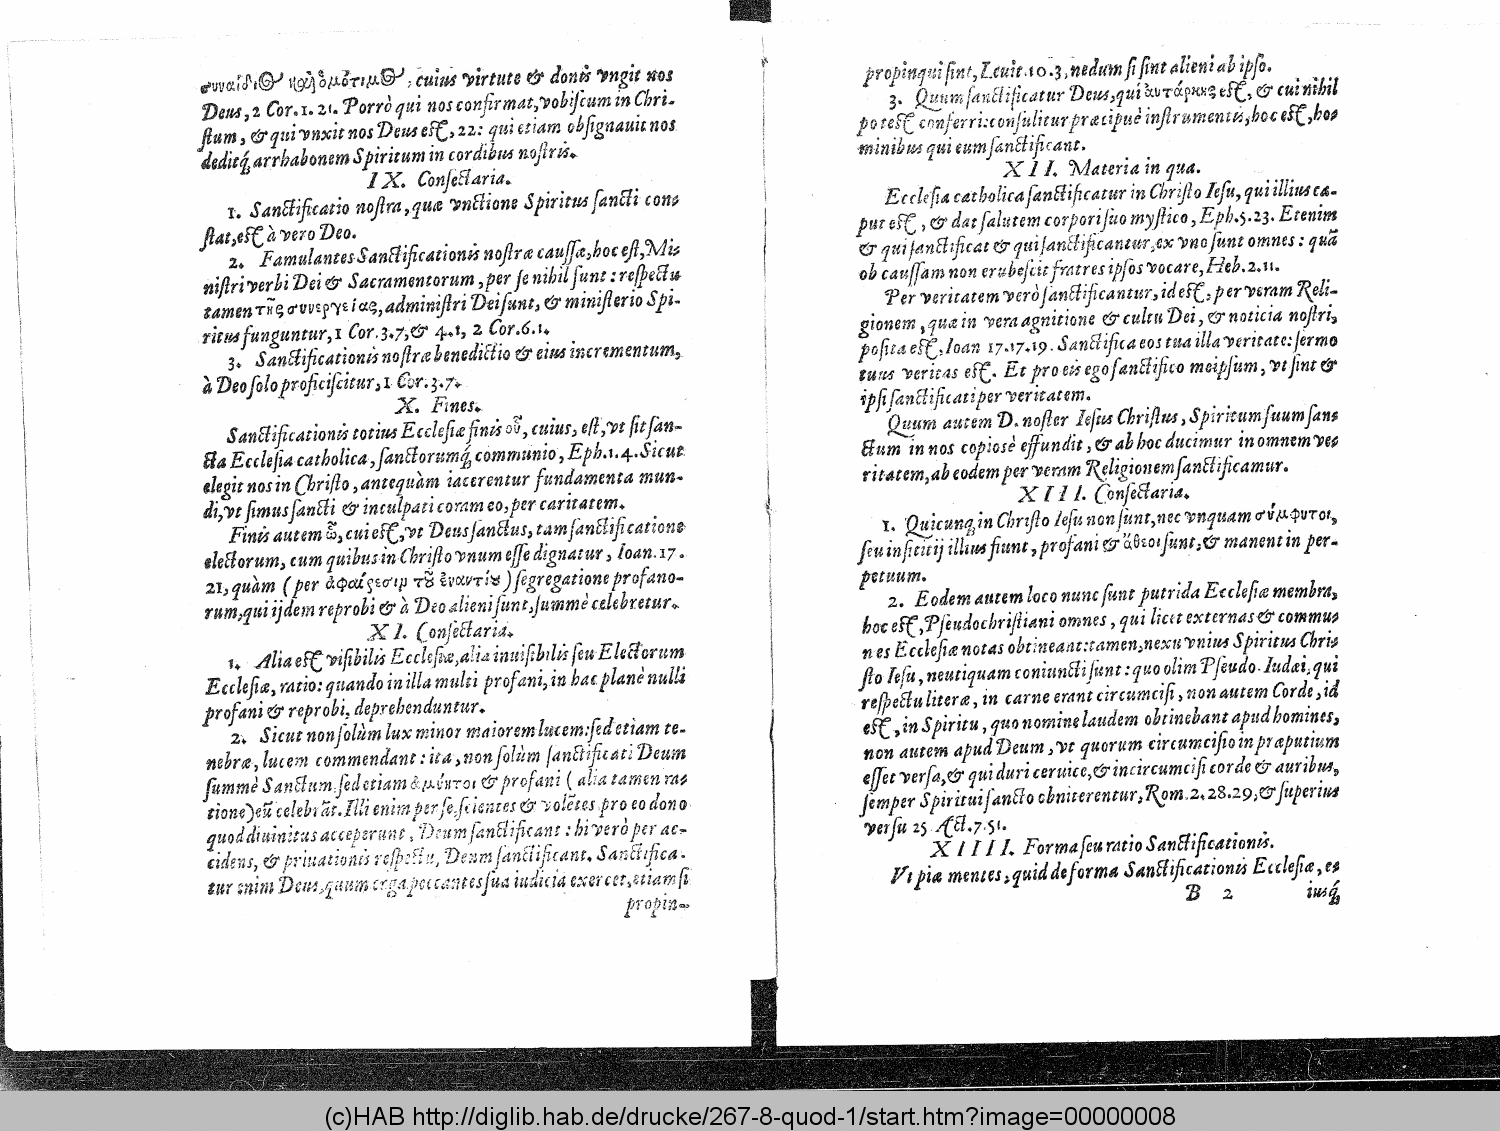 συναΐδιος καὶ ὁμότιμος, cuius virtute & donis vngit nos
Deus, 2 Cor. 1. 21. Porrò qui nos confirmat, vobiſcum in Chri-
ſtum, & qui vnxit nos Deus eſt, 22: qui etiam obſignauit nos
deditq́; arrhabonem Spiritum in cordibus noſtris.
IX. Conſectaria.
1. Sanctificatio noſtra, quæ vnctione Spiritus ſancti con-
ſtat, eſt à vero Deo.
2. Famulantes Sanctificationis noſtræ cauſſæ, hoc eſt, Mi-
niſtri verbi Dei & Sacramentorum, per ſe nihil ſunt: reſpectu
tamen τῆς συνεργείας, adminiſtri Dei ſunt, & miniſterio Spi-
ritus funguntur, 1 Cor. 3. 7, & 4. 1, 2 Cor. 6. 1.
3. Sanctificationis noſtræ benedictio & eius incrementum,
à Deo ſolo proficiſcitur, 1 Cor. 3. 7.
X. Fines.
Sanctificationis totius Eccleſiæ finis οὗ, cuius, eſt, vt ſit ſan-
cta Eccleſia catholica, ſanctorumq́; communio, Eph. 1. 4. Sicut
elegit nos in Chriſto, antequàm iacerentur fundamenta mun-
di, vt ſimus ſancti & inculpati coram eo, per caritatem.
Finis autem ᾧ, cui eſt, vt Deus ſanctus, tam ſanctificatione
electorum, cum quibus in Chriſto vnum eſſe dignatur, Ioan. 17.
21, quàm (per ἀφαίρεσιμ τȣ̃ ἐναντίȣ) ſegregatione profano-
rum, qui ijdem reprobi & à Deo alieni ſunt, ſummè celebretur.
XI. Conſectaria.
1. Alia eſt viſibilis Eccleſiæ, alia inuiſibilis ſeu Electorum
Eccleſiæ, ratio: quando in illa multi profani, in hac planè nulli
profani & reprobi, deprehenduntur.
2. Sicut non ſolùm lux minor maiorem lucem: ſed etiam te-
nebræ, lucem commendant: ita, non ſolùm ſanctificati Deum
ſummè Sanctum, ſed etiam ἀμύητοι & profani (alia tamen ra-
tione) eũ celebrãt. Illi enim per ſe, ſcientes & volẽtes pro eo dono
quod diuinitus acceperunt, Deum ſanctificant: hi verò per ac-
cidens, & priuationis reſpectu, Deum ſanctificant. Sanctifica-
tur enim Deus, quum erga peccantes ſua iudicia exercet, etiam ſi
propin-
propinqui ſint, Leuit. 10. 3, nedum ſi ſint alieni ab ipſo.
3. Quum ſanctificatur Deus, qui ἀυτάρκης eſt, & cui nihil
poteſt conferri: conſulitur præcipuè inſtrumentis, hoc eſt, ho-
minibus qui eum ſanctificant.
XII. Materia in qua.
Eccleſia catholica ſanctificatur in Chriſto Ieſu, qui illius ca-
put eſt, & dat ſalutem corpori ſuo myſtico, Eph. 5. 23. Etenim
& qui ſanctificat & qui ſanctificantur, ex vno ſunt omnes: quã
ob cauſſam non erubeſcit fratres ipſos vocare, Heb. 2. 11.
Per veritatem verò ſanctificantur, id eſt, per veram Reli-
gionem, quæ in vera agnitione & cultu Dei, & noticia noſtri,
poſita eſt, Ioan 17. 17. 19. Sanctifica eos tua illa veritate: ſermo
tuus veritas eſt. Et pro eis ego ſanctifico meipſum, vt ſint &
ipſi ſanctificati per veritatem.
Quum autem D. noſter Ieſus Chriſtus, Spiritum ſuum ſan-
ctum in nos copiosè effundit, & ab hoc ducimur in omnem ve-
ritatem, ab eodem per veram Religionem ſanctificamur.
XIII. Conſectaria.
1. Quicunq; in Chriſto Ieſu non ſunt, nec vnquam σύμφυτοι,
ſeu inſititij illius fiunt, profani & ἄθεοι ſunt, & manent in per-
petuum.
2. Eodem autem loco nunc ſunt putrida Eccleſiæ membra,
hoc eſt, Pſeudochriſtiani omnes, qui licet externas & commu-
nes Eccleſiæ notas obtineant: tamen, nexu vnius Spiritus Chri-
ſto Ieſu, neutiquam coniuncti ſunt: quo olim Pſeudo-Iudæi, qui
reſpectu literæ, in carne erant circumciſi, non autem Corde, id
eſt, in Spiritu, quo nomine laudem obtinebant apud homines,
non autem apud Deum, vt quorum circumciſio in præputium
eſſet verſa, & qui duri ceruice, & incircumciſi corde & auribus,
ſemper Spiritui ſancto obniterentur, Rom. 2. 28. 29, & ſuperius
verſu 25 Act. 7. 51.
XIIII. Forma ſeu ratio Sanctificationis.
Vt piæ mentes, quid de forma Sanctificationis Eccleſiæ, e-
B 2 iusq́;
(c)HAB http://diglib.hab.de/drucke/267-8-quod-1/start.htm?image=00000008